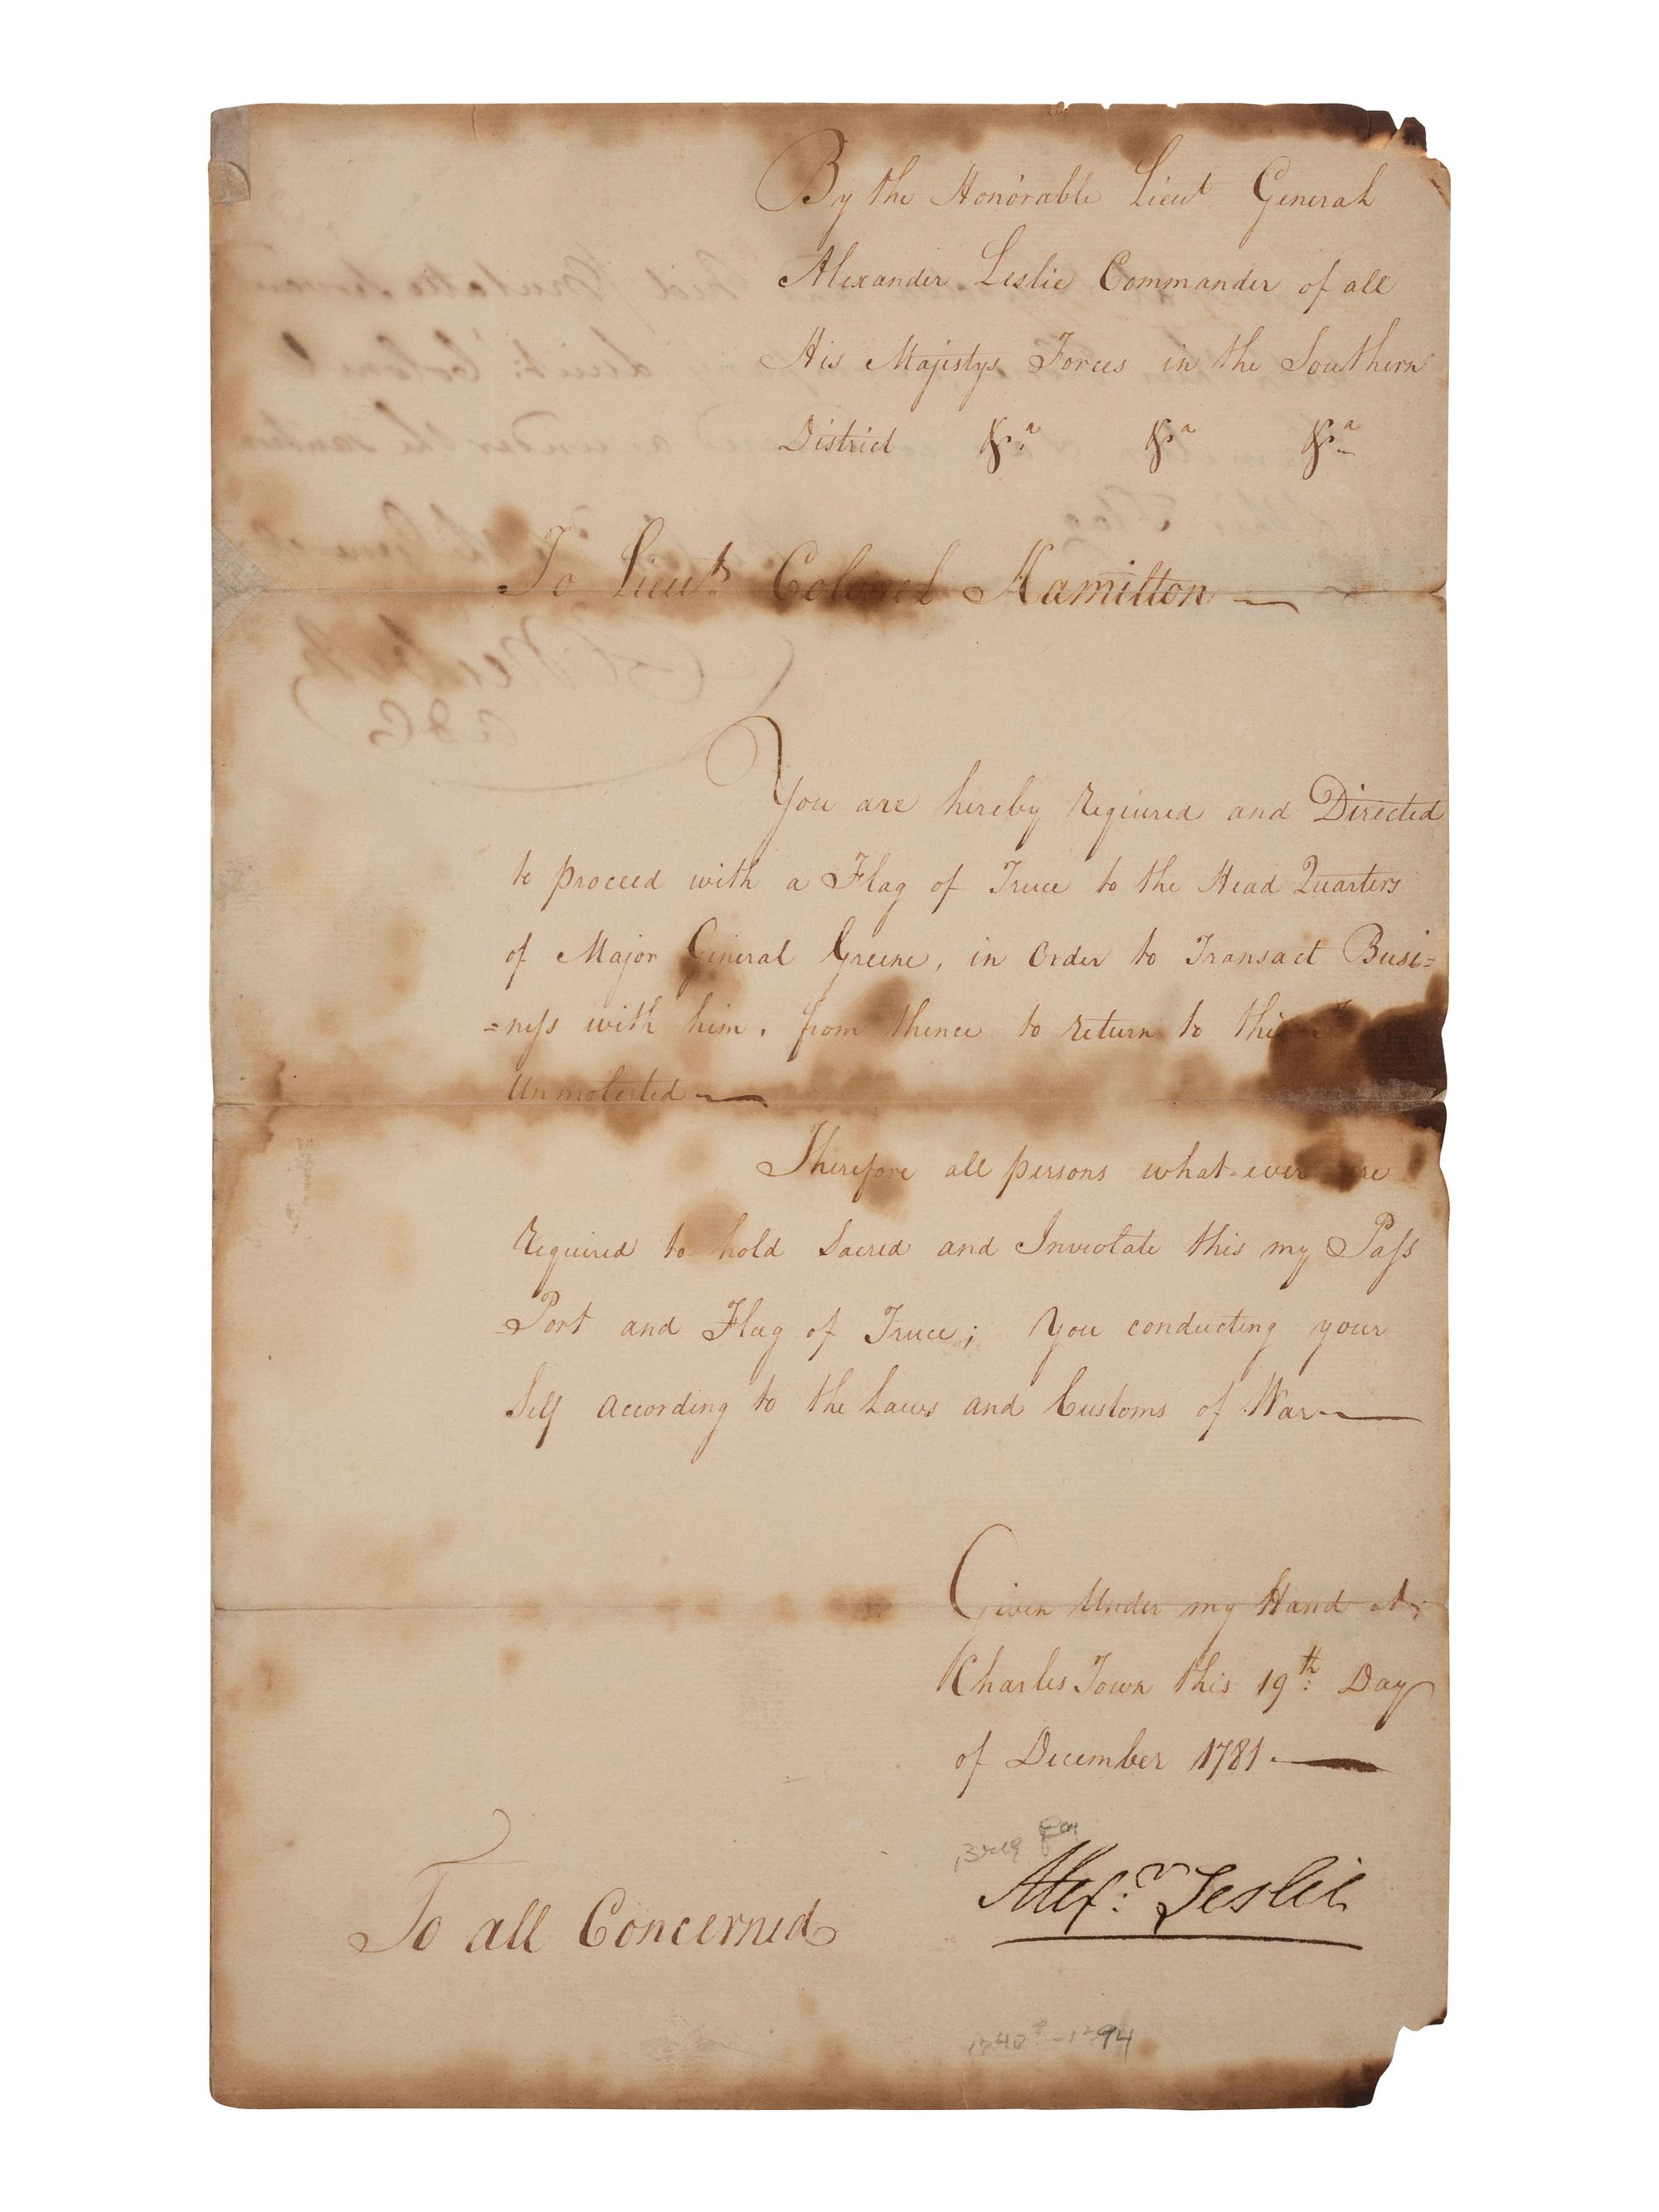 By the Honorable Lieut. General
Alexander Leslie Commander of all
His Majestys Forces in the Southern
District &c.a &c.a &c.a
To Lieut. Colonel Hamilton —
You are hereby required and Directed
to proceed with a Flag of Truce to the Head Quarters
of Major General Greene, in Order to Transact Busi=
=neſs with him, from thence to return to this
Unmolested —
Therefore all persons what-ever are
required to hold Sacred and Inviolate this my Paſs
=Port and Flag of Truce; You conducting your
Self according to the Laws and Customs of War —
Given Under my Hand at
Charles Town this 19th: Day
of December 1781. —
Alex:r Leslie
To all Concerned
1740? - 1794